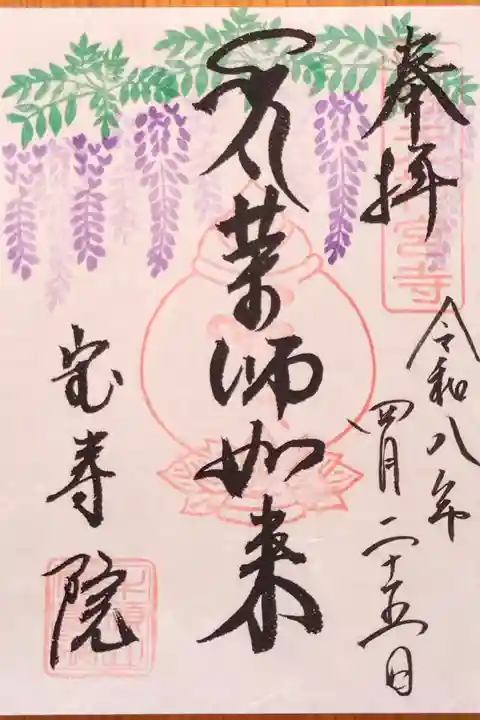 奉拝
令和八年
四月二十五日
薬師如来
宝寿院